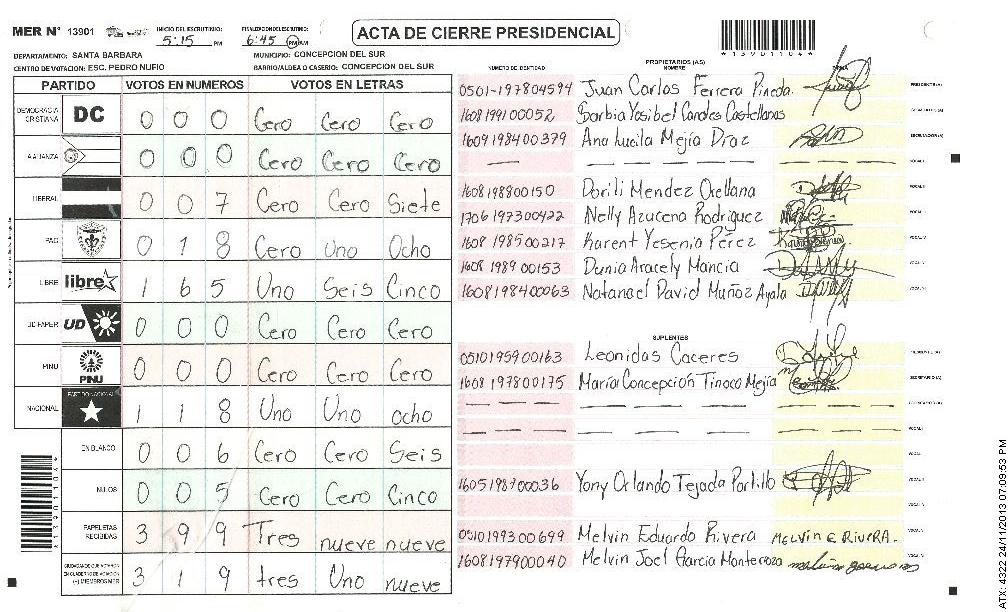 MER N° 13901 INICIO DEL ESCRUTINIO: 5:15 PM FINALIZACION DEL ESCRUTINIO: 6:45 PM
ACTA DE CIERRE PRESIDENCIAL
*13901104*
DEPARTAMENTO: SANTA BARBARA MUNICIPIO: CONCEPCION DEL SUR
CENTRO DE VOTACION: ESC. PEDRO NUFIO BARRIO/ALDEA O CASERIO: CONCEPCION DEL SUR
PARTIDO VOTOS EN NUMEROS VOTOS EN LETRAS
DEMOCRACIA CRISTIANA DC 0 0 0 Cero Cero Cero
ALIANZA 0 0 0 Cero Cero Cero
LIBERAL 0 0 7 Cero Cero Siete
PAC 0 1 8 Cero Uno Ocho
LIBRE libre 1 6 5 Uno Seis Cinco
UD-FAPER UD 0 0 0 Cero Cero Cero
PINU PINU 0 0 0 Cero Cero Cero
NACIONAL PARTIDO NACIONAL 1 1 8 Uno Uno ocho
EN BLANCO 0 0 6 Cero Cero Seis
NULOS 0 0 5 Cero Cero Cinco
PAPELETAS RECIBIDAS 3 9 9 Tres nueve nueve
CIUDADANOS QUE VOTARON EN CUADERNO DE VOTACION (+) MIEMBROS MER 3 1 9 tres Uno nueve
PROPIETARIOS (AS)
NUMERO DE IDENTIDAD NOMBRE FIRMA
0501-197804594 Juan Carlos Ferrera Pineda. PRESIDENTE (A)
1608199100052 Sorbia Yosibel Candes Castellanos SECRETARIO (A)
1609198400379 Ana Lucila Mejía Díaz ESCRUTADOR (A)
VOCAL I
1608198800150 Dorili Mendez Orellana VOCAL II
1706197300422 Nelly Azucena Rodriguez VOCAL III
1608198500217 Karent Yesenia Pérez VOCAL IV
1608198900153 Dunia Aracely Mancia VOCAL V
1608198400063 Natanael David Muñoz Ayala VOCAL VI
SUPLENTES
0510195900163 Leonidas Caceres PRESIDENTE (A)
1608197800175 María Concepción Tinoco Mejía SECRETARIO (A)
ESCRUTADOR (A)
VOCAL I
VOCAL II
1605198700036 Yony Orlando Tejada Portillo VOCAL III
VOCAL IV
0510199300699 Melvin Eduardo Rivera MELVIN E RIVERA. VOCAL V
1608197900040 Melvin Joel Garcia Monterroza VOCAL VI
*13901104*
ATX: 4322 24/11/2013 07:09:53 PM